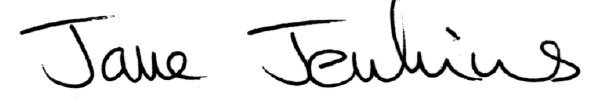 Jane Jenkins